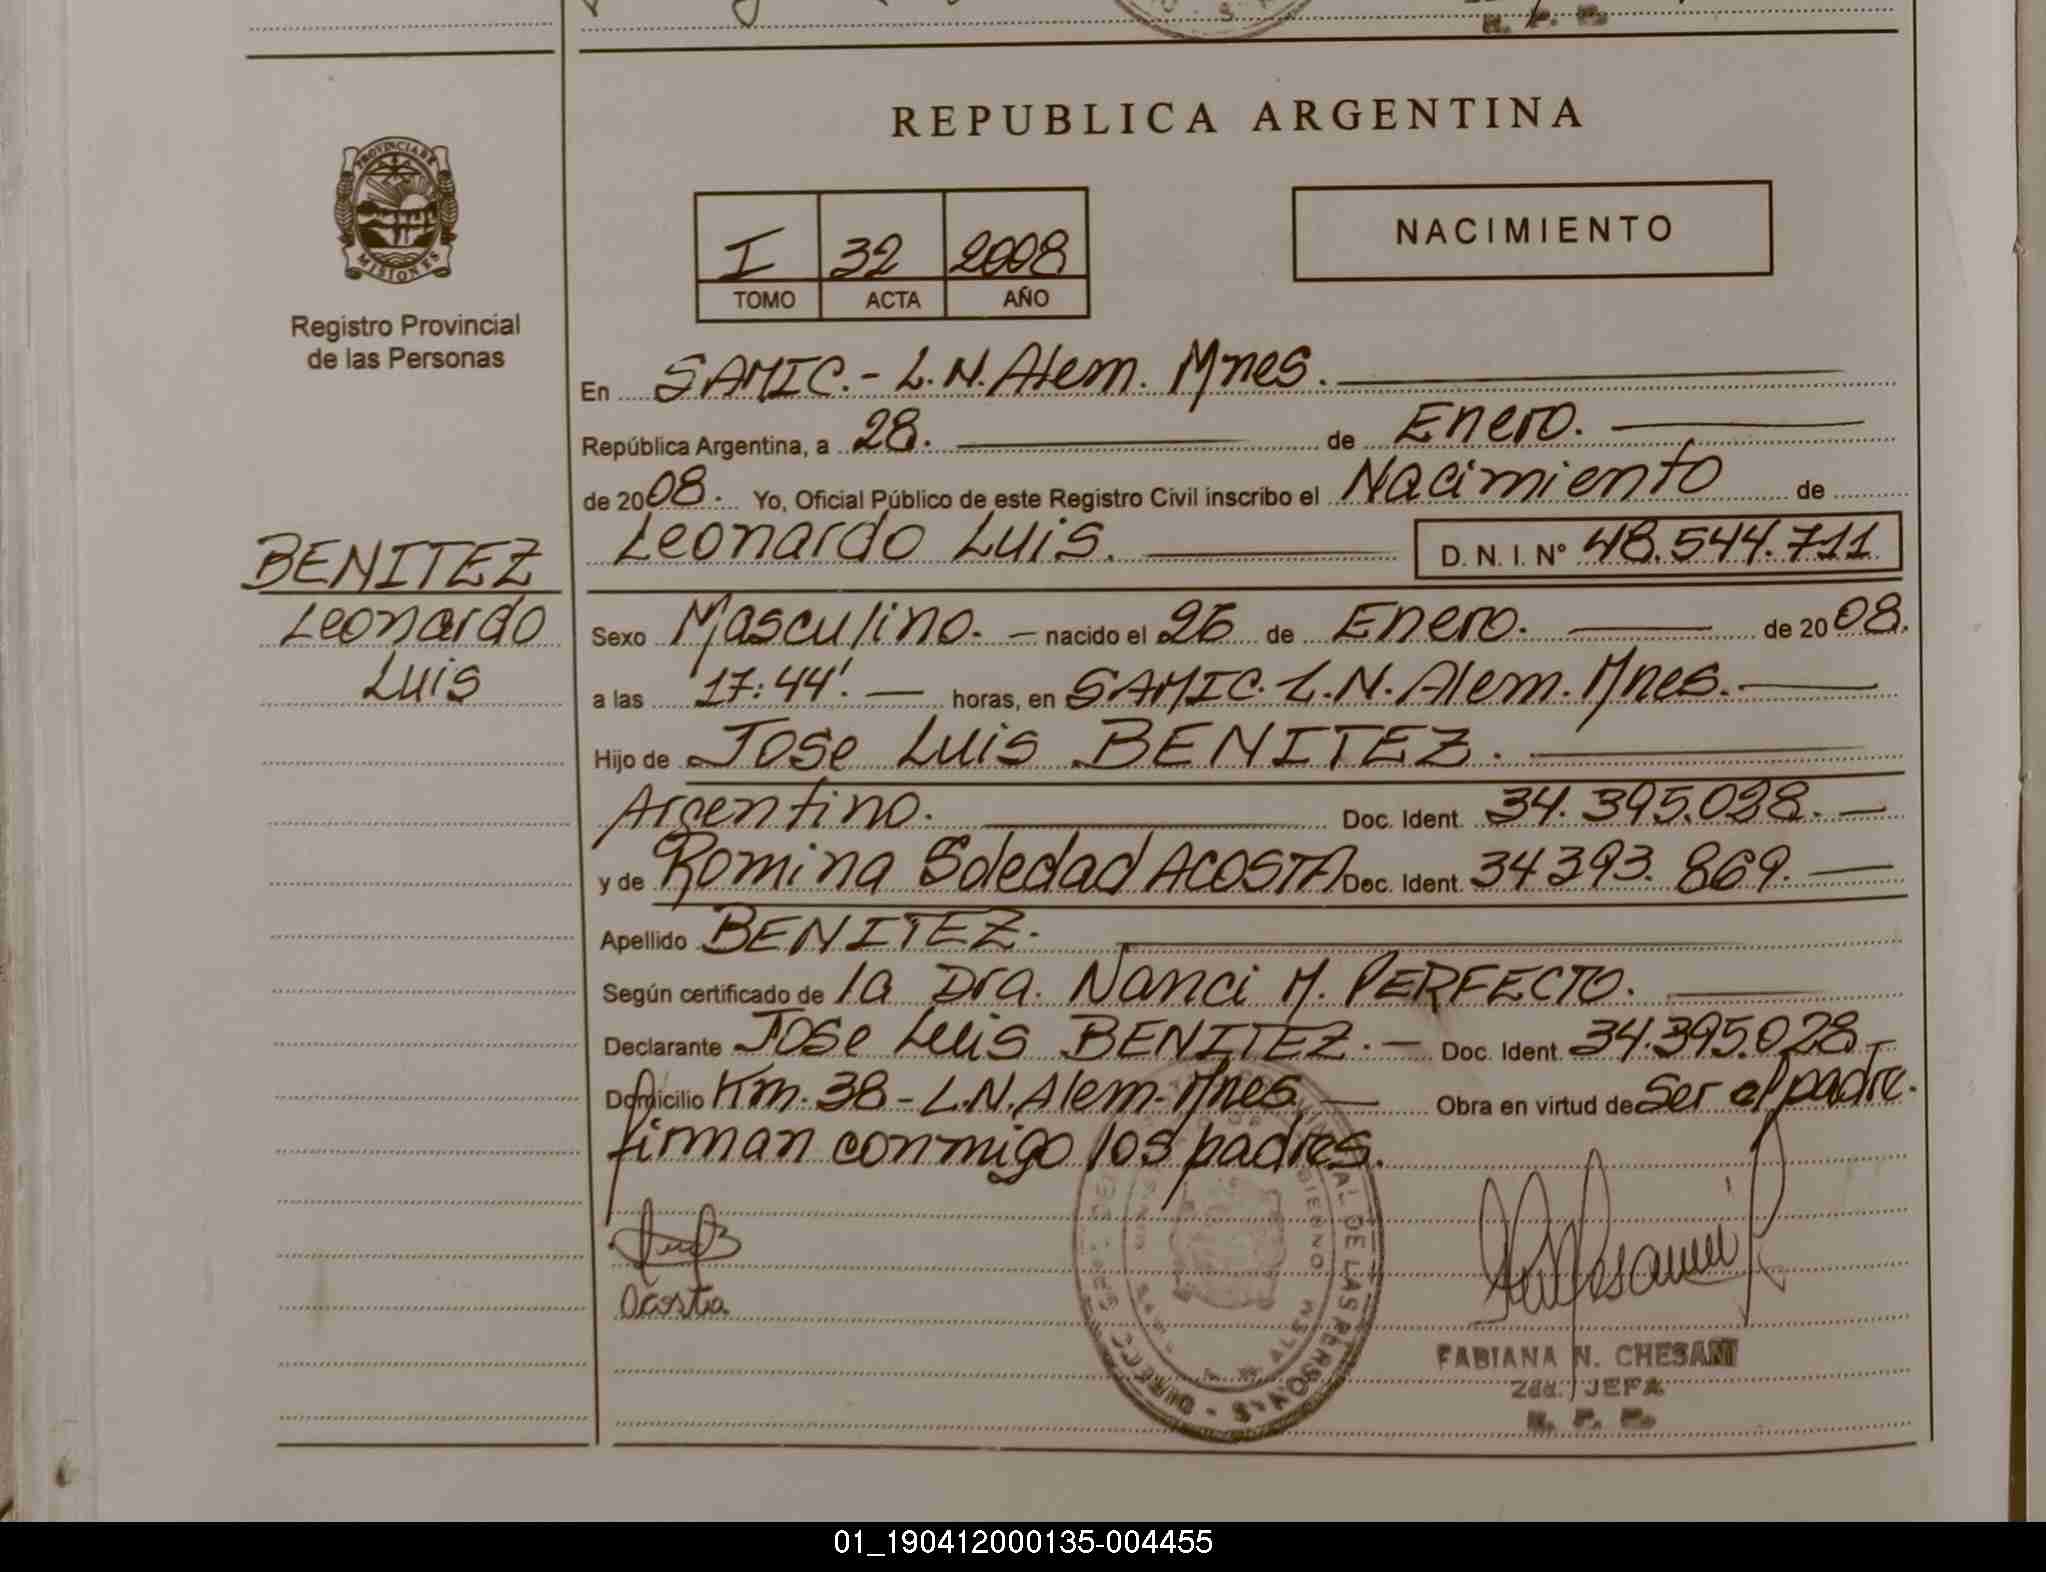 REPUBLICA ARGENTINA
PROVINCIA DE
MISIONES
Registro Provincial
de las Personas
I 32 2008
TOMO ACTA AÑO
NACIMIENTO
En SAMIC.- L.N. Alem. Mnes.
República Argentina, a 28. de Enero.
de 2008. Yo, Oficial Público de este Registro Civil inscribo el Nacimiento de
Leonardo Luis. D. N. I. Nº 48.544.711
BENITEZ
Leonardo
Luis
Sexo Masculino. nacido el 26 de Enero. de 2008.
a las 17:44'. horas, en SAMIC. L.N. Alem. Mnes.
Hijo de Jose Luis BENITEZ.
Argentino. Doc. Ident. 34.395.028.
y de Romina Soledad ACOSTA Doc. Ident. 34393.869.
Apellido BENITEZ.
Según certificado de la Dra. Nanci M. PERFECTO.
Declarante Jose Luis BENITEZ. Doc. Ident. 34.395.028
Domicilio Km. 38 - L.N. Alem. Mnes. Obra en virtud de Ser el padre.
firman conmigo los padres.
Acosta
DE LAS PERSONAS
ALEM
FABIANA N. CHESANI
2da. JEFA
R. P. P.
01_190412000135-004455